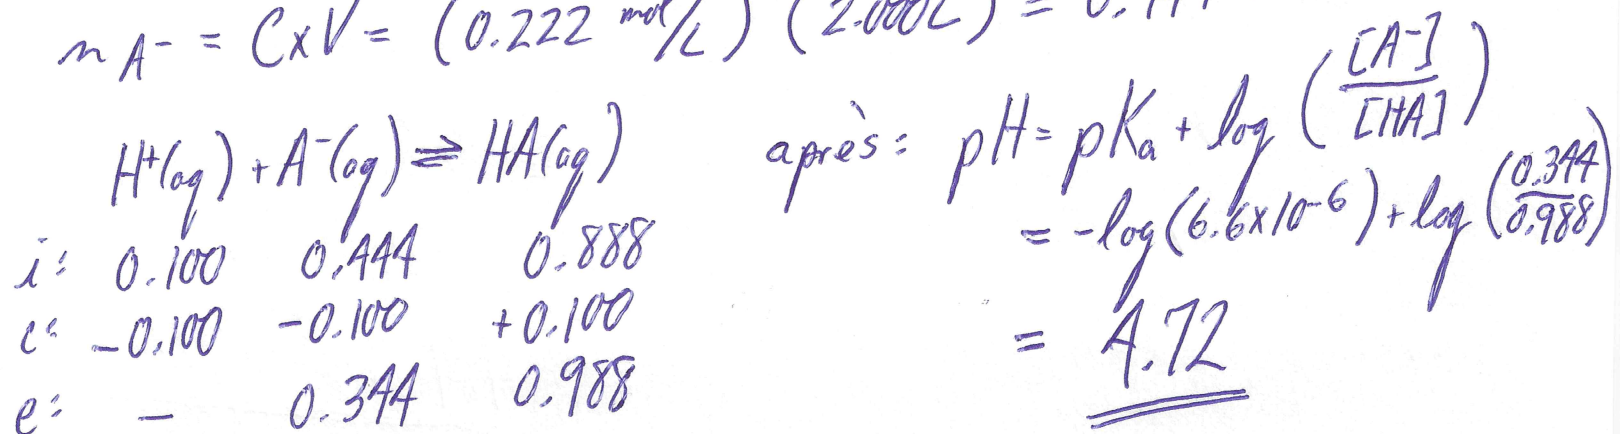 n A⁻ = C×V = (0.222 mol/L) (2.000L) =
H⁺(aq) + A⁻(aq) ⇌ HA(aq)
i: 0.100 0.444 0.888
c: -0.100 -0.100 +0.100
e: - 0.344 0.988
après: pH = pKa + log ([A⁻]/[HA])
= -log(6.6×10⁻⁶) + log (0.344/0.988)
= 4.72